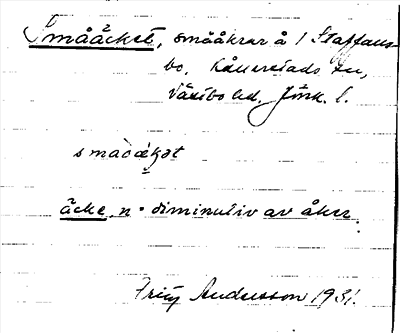 Smååcket, småakrar å / Staffans-
bo, Kållerstads sn,
Västbo hd, Jönk. l.
småäkət
äcke n. diminutiv av åker.
Fritz Andersson 1931.